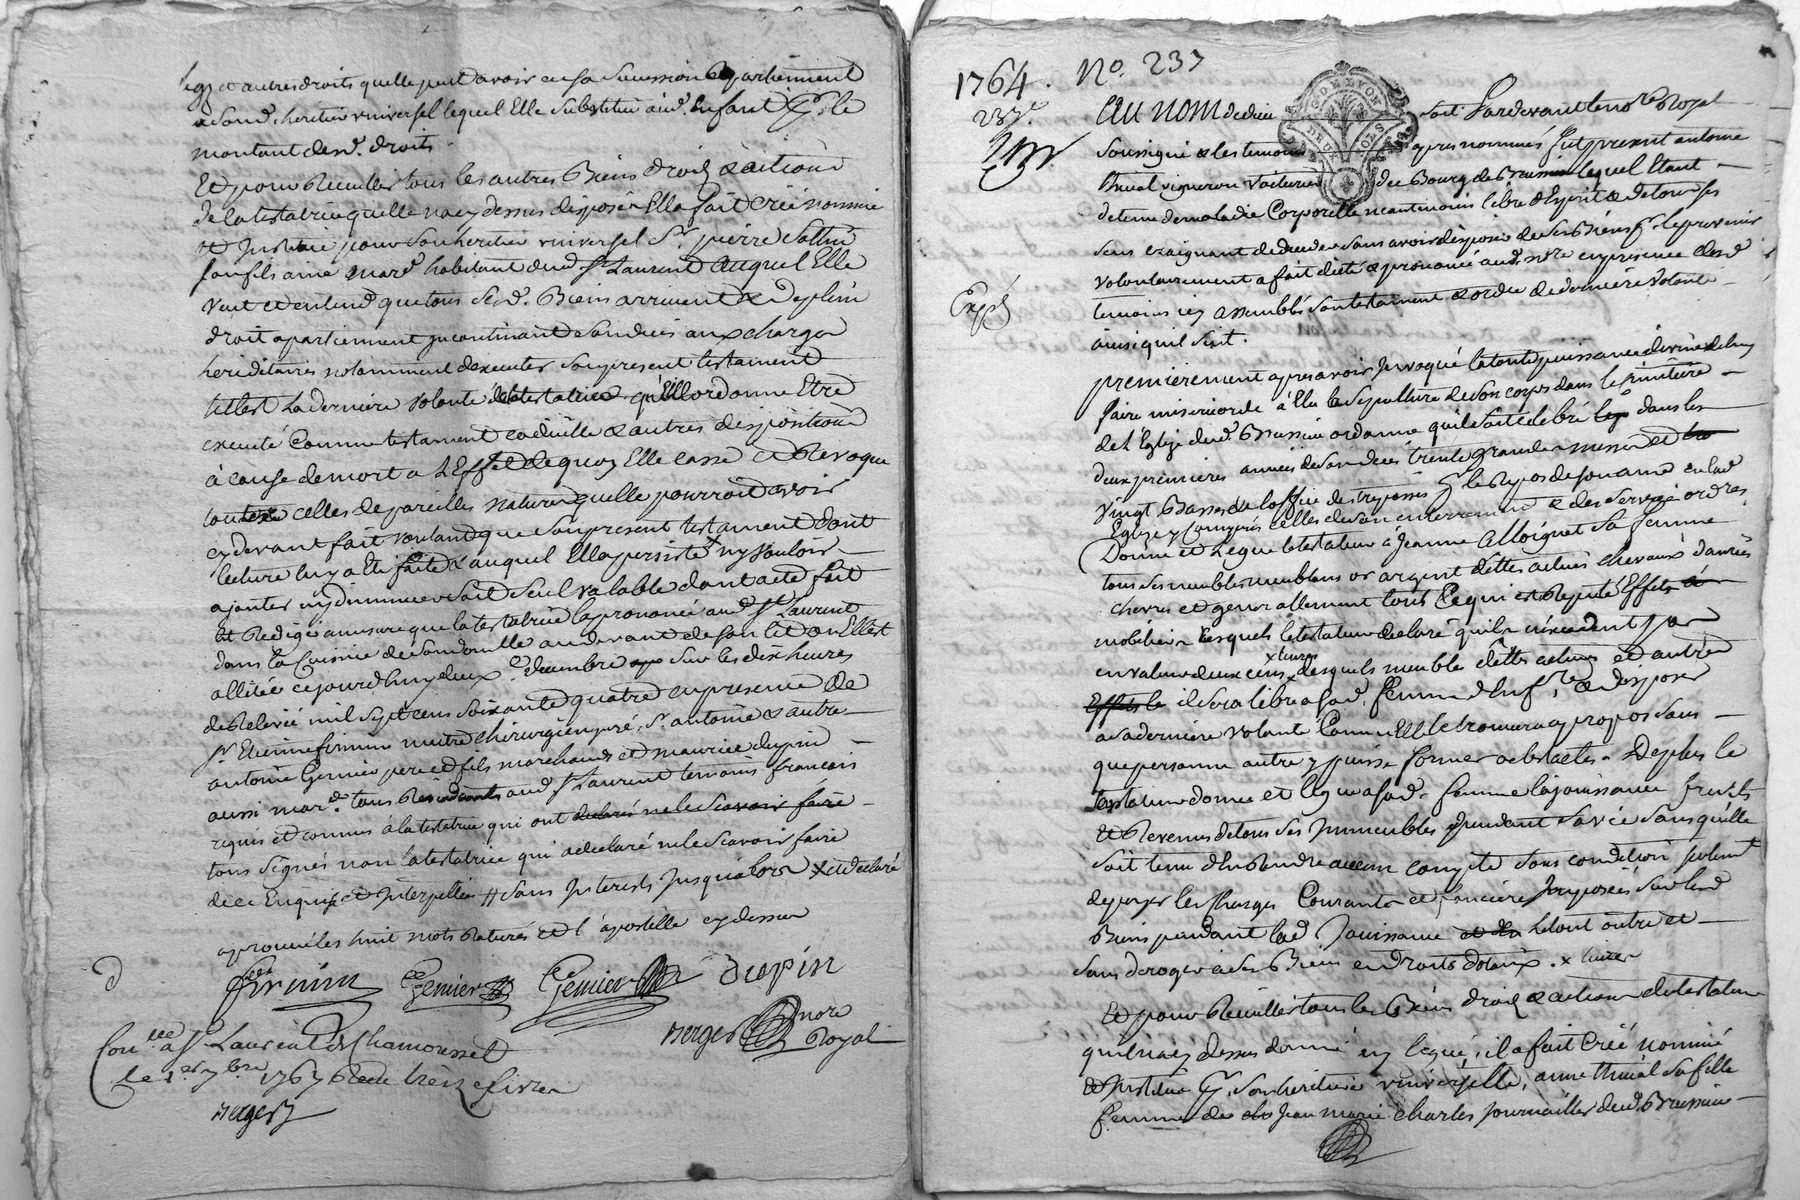 legs et autres droits quelle peut avoir en sa succession apartiennent
a sond. heritier universel lequel Elle substitue aud. enfant pr. le
montant desd. droits.
Et pour Recuillir tous les autres Biens droits & actions
de la testatrice quelle na cy dessus disposé Elle a fait créé nommé
et Institué pour son heritier universel Sr. pierre
son fils ainé mard. habitant dud. St Laurent auquel Elle
veut et entend que tous sesd. Biens arrivent & de plein
droit apartiennent incontinant son deces aux charges
hereditaires notamment dexecuter son present testament
tel Est la derniere volonté de la testatrice qu'Elle ordonne Etre
executé Comme testament codicille & autres dispositions
à cause de mort a l'Effet de quoy Elle casse et Revoque
toutes celles de pareilles natures quelle pourroit avoir
cy devant fait voulant que son present testament dont
lecture luy a Eté faite & auquel Elle a persisté ny vouloir
ajouter ny diminuer soit seul valable dont acte fait
et Redigé a mesure que la testatrice la prononcé aud. St Laurent
dans la Cuisine de son domille au devant de son lit ou Elle Est
allitée cejourdhuy deux decembre sur les dix heures
de Relevée mil sept cens soixante quatre en presence de
Sr. Etienne firmin maitre chirurgien juré, Sr. antoine & autre
antoine Gemier pere et fils marchands et maurice dupin
aussi mard. tous Residents aud. St Laurent temoins francois
requis et connus à la testatrice qui ont declaré ne le scavoir faire
tous signés non la testatrice qui a declaré ne le scavoir faire
de ce Enquise et Interpellée # sans Interests Jusqu'alors x et declaré
aprouvé les huit mots Raturés et l'apostille cy dessus
firmin Gemier Gemier Dupin
Berger nore Royal
Conlée a St Laurent de Chamousset
le 7bre 1767 Reçu treize livres
Berger
1764. No. 237
237e.
Au nom de dieu soit Pardevant le nore Royal
soussigné & les temoins apres nommés fut present antoine
thivial vigneron voiturier du Bourg de Brussieu lequel Etant
detenu de maladie Corporelle neantmoins libre d'Esprit & de tous ses
sens craignant de deceder sans avoir disposé de ses Biens pr. le prevenir
volontairement a fait dicté & prononcé aud. nore en presence desd.
temoins icy assemblés son testament & ordre de derniere volonté
ainsi quil suit.
Expé
premierement apres avoir Invoqué la toute puissance divine de luy
faire misericorde à Elu la sepulture de son corps dans le Cimetiere
de l'Eglize dud. Brussieu ordonne quil soit celebré dans les
deux premieres années de son deces trente grandes messes et
vingt Basses de loffice des trepassés pr. le Repos de son ame en lad.
Eglize y compris celles de son enterrement & des services ordres
Donne et Legue le testateur a Jeanne alloignet sa femme
tous ses meubles meublans or argent dettes actives chevaux danrées
chevres et generallement tout Ce qui est Reputé Effets
mobiliers lesquels le testateur declare quils n'excedent pas
en valeur deux cens x desquels meuble dettes actives et autres
x livres
Effets le il sera libre a sad. femme & disposer
a sa derniere volonté Comme Elle trouvera a propos sans
que personne autre y puisse former obstacles. De plus le
testateur donne et legue a sad. femme la jouissance fruits
et Revenus de tous ses Immeubles pendant sa vie sans qu'elle
soit tenu d'en Rendre aucun compte sous condition seulemt
de payer les Charges Courantes et foncieres Imposées sur lesd.
Biens pendant lad. Jouissance et le tout outre et
sans deroger a ses Biens et droits dotaux. x livres
Et pour Recuillir tous les Biens droits & actions du testateur
quil na cy dessus donné ny legué, il a fait Créé nommé
et Institué pr. son heritiere universelle, anne thivial sa fille
femme de Jean marie charles journaillier dud. Brussieu